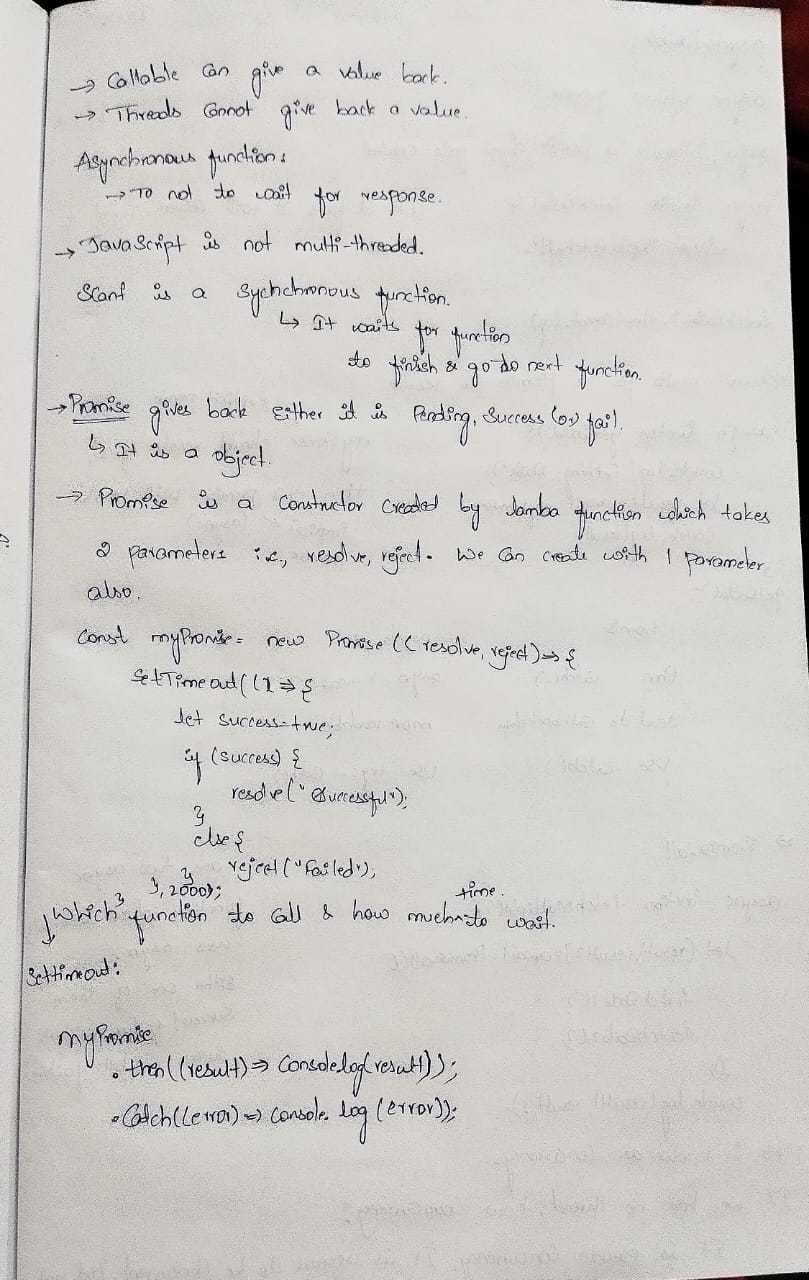 → Callable can give a value back.
→ Threads cannot give back a value.
Asynchronous function:
→ To not to wait for response.
→ JavaScript is not multi-threaded.
Scanf is a Sychchronous function.
↳ It waits for function
to finish & go to next function.
→ Promise gives back Either it is Pending, Success (or) fail.
↳ It is a object.
→ Promise is a Constructor created by Lamba function which takes
2 parameters i.e, resolve, reject. We can create with 1 parameter
also.
Const myPromise = new Promise ((resolve, reject) => {
SetTimeout(() => {
let success=true;
if (success) {
resolve("Successful");
}
else {
reject ("Failed");
}
}, 2000);
}
time.
↓ Which function to call & how much to wait.
Settimeout:
myPromise
.then((result) => Console.log(result));
.Catch((error) => Console.log (error));